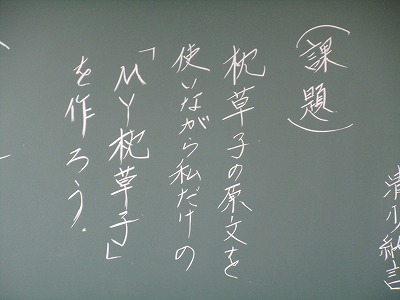 清少納言
（課題）
枕草子の原文を
使いながら私だけの
「MY枕草子」
を作ろう.